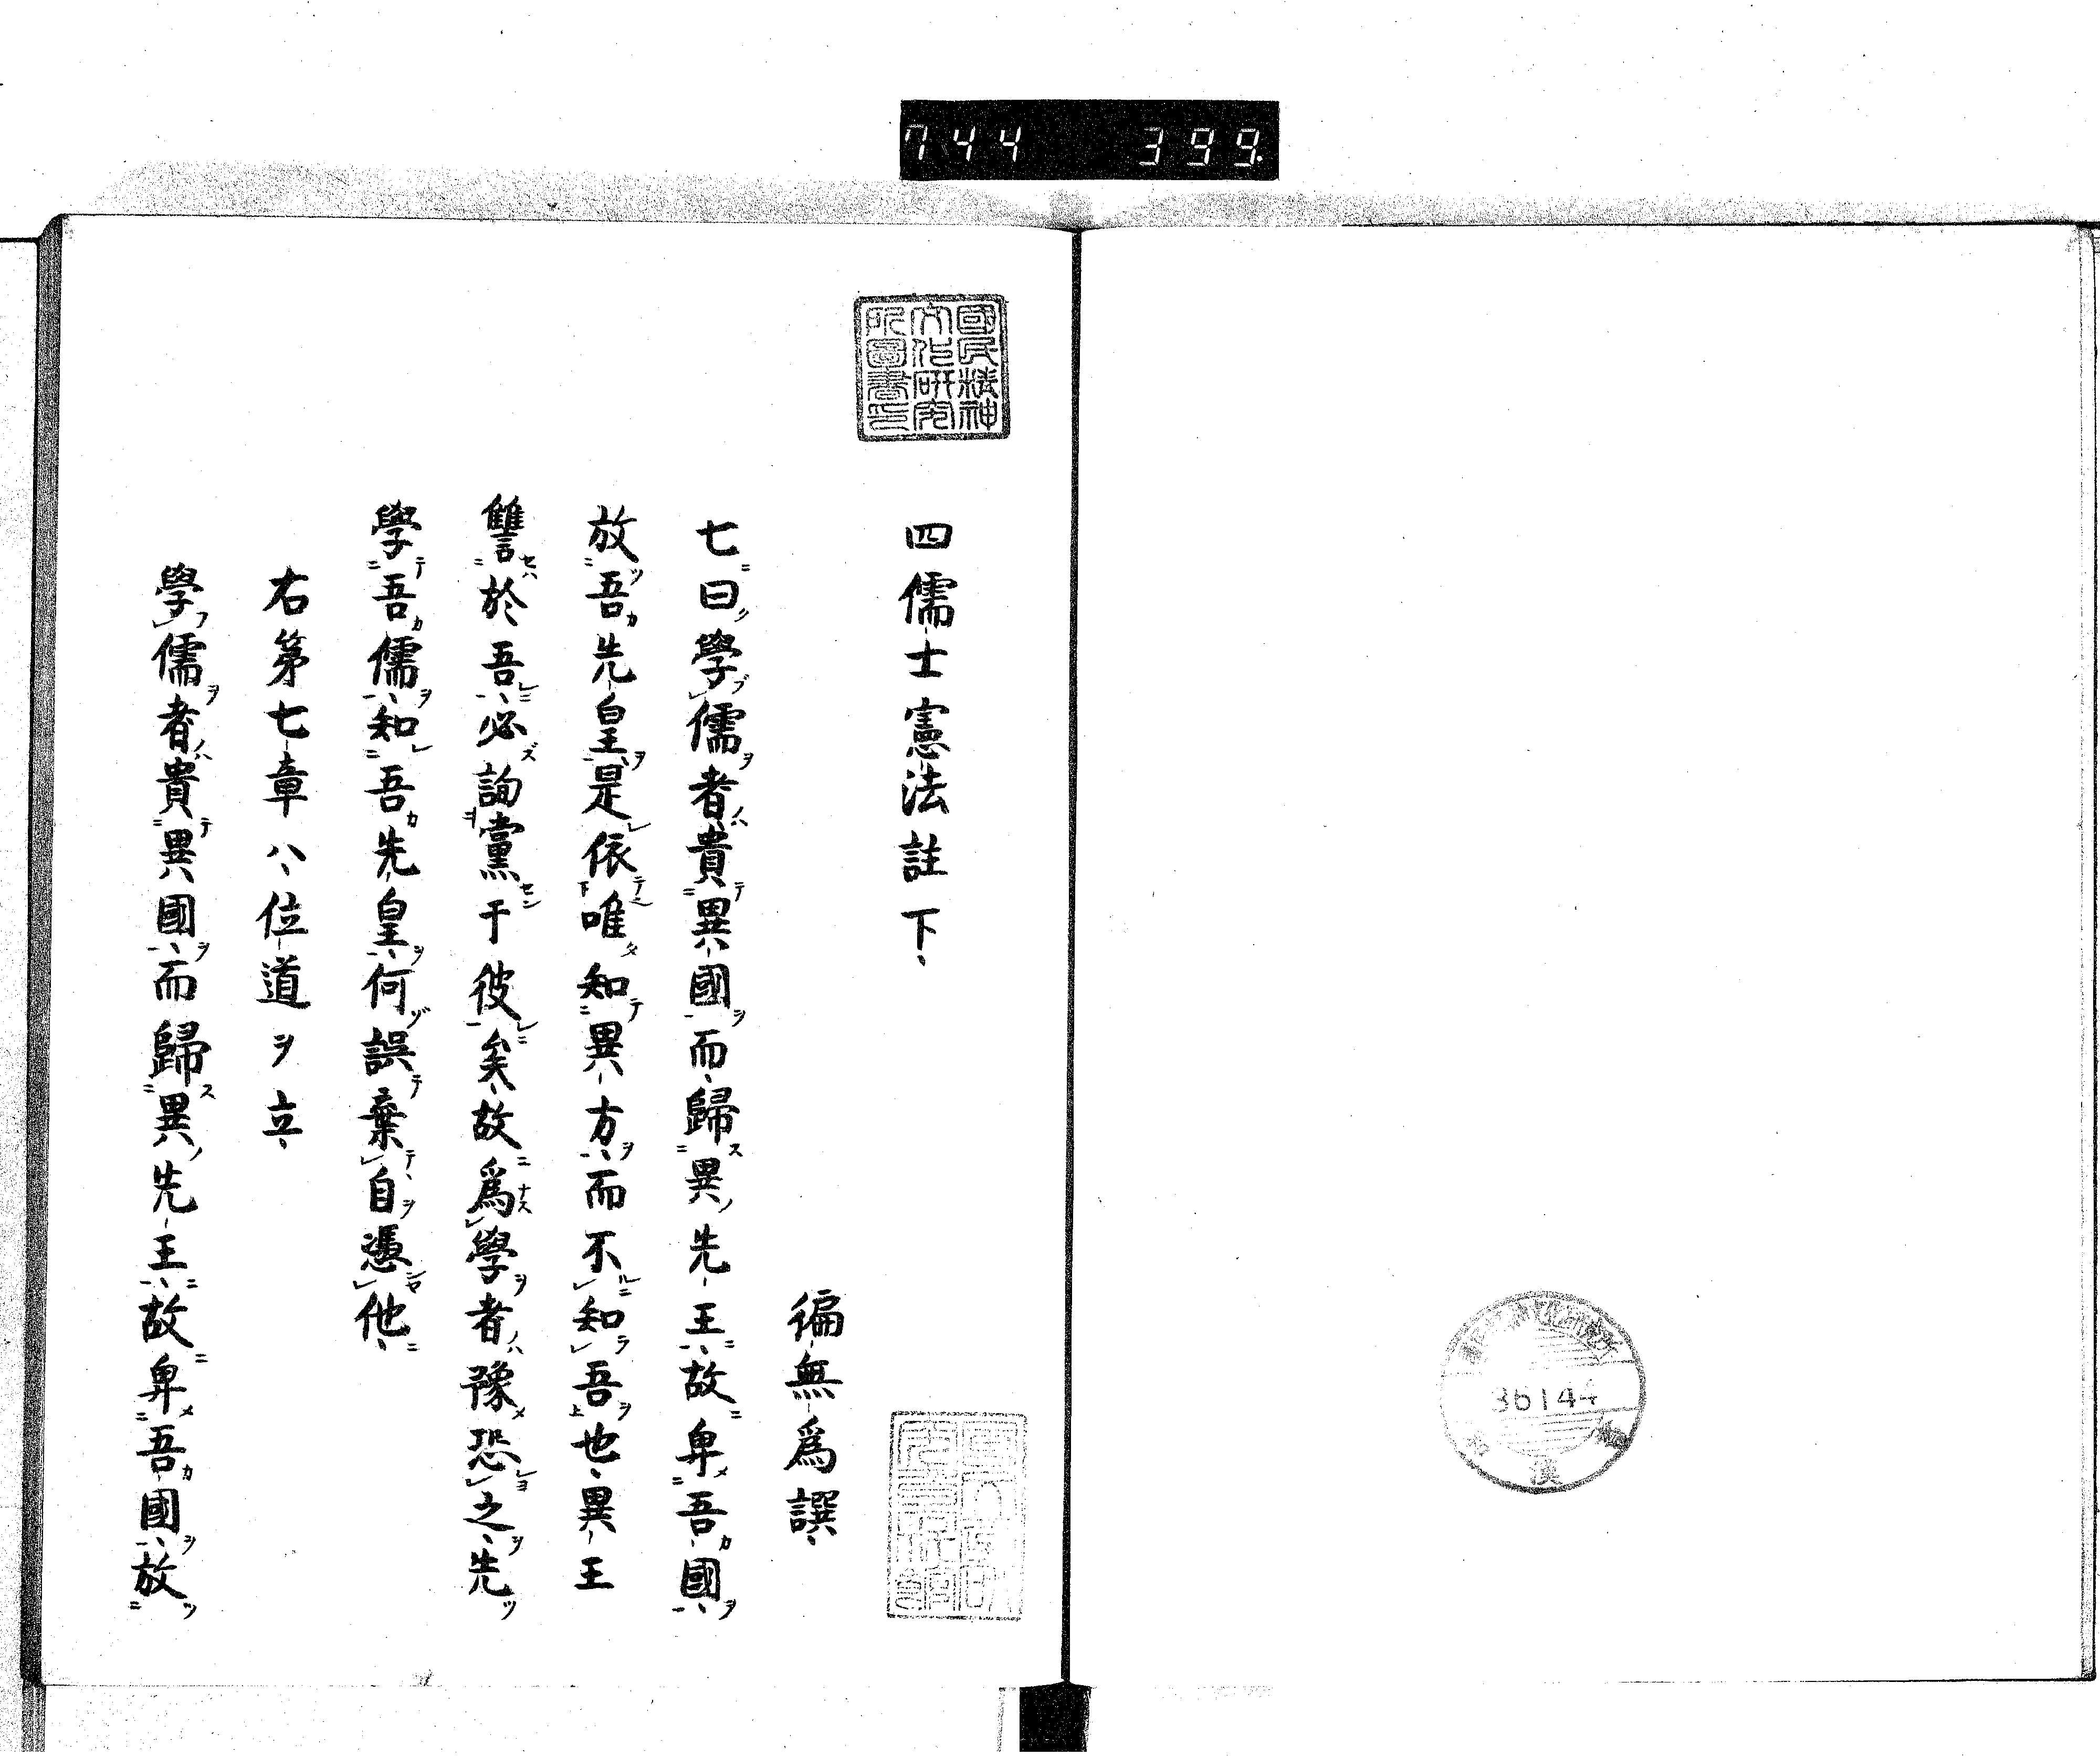 744 399
國民精神
文化研究
所圖書印
四儒士憲法註下、
徧無爲譔、
七曰學儒者貴異國而歸異先王故卑吾國
放吾先皇是依唯知異方而不知吾也異王
讐於吾必詢黨于彼矣故爲學者豫恐之先
學吾儒知吾先皇何誤棄自憑他、
右第七章ハ位道ヲ立、
學儒者貴異國而歸異先王故卑吾國放
36144